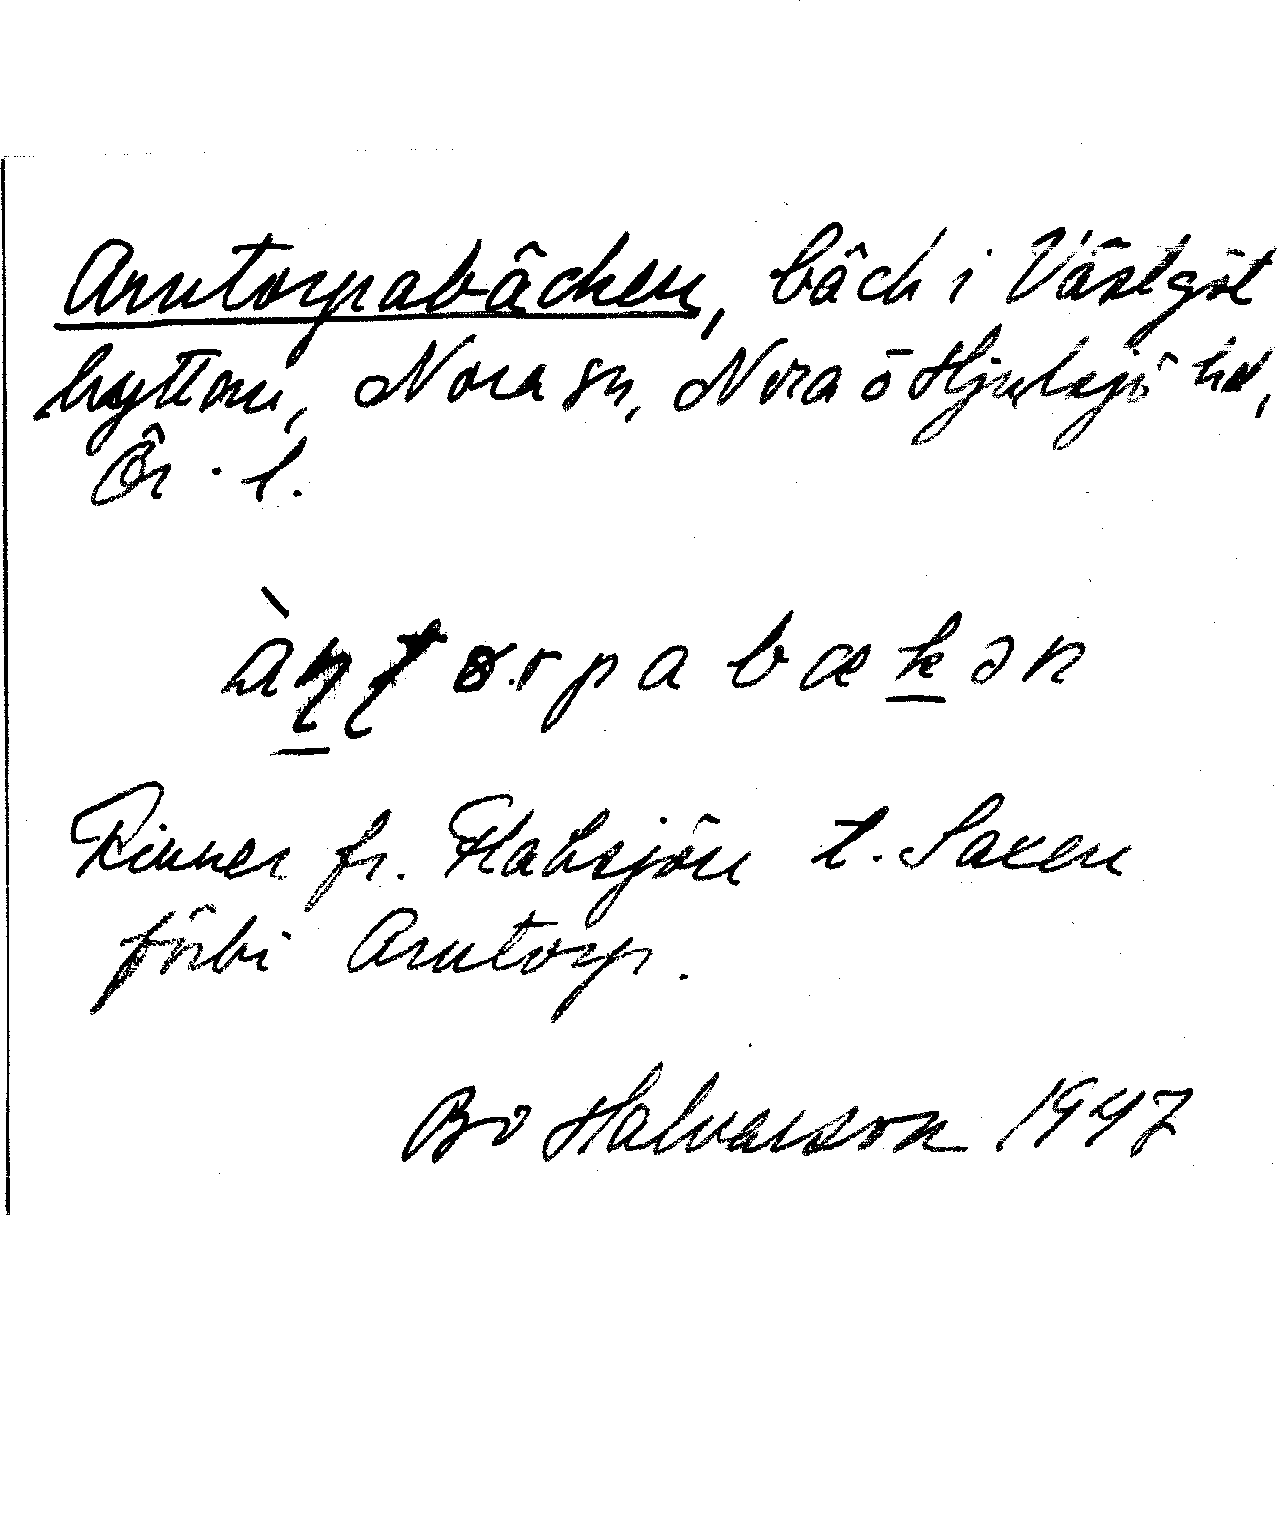 Arntorpabäcken, bäck i Västgöt
hyttan, Nora sn, Nora ō Hjulsjö hd,
Ör. l.
àɳʈorpabækən
Rinner fr. Flaksjön t. Saxen
förbi Arntorp.
Bo Halvarson 1947